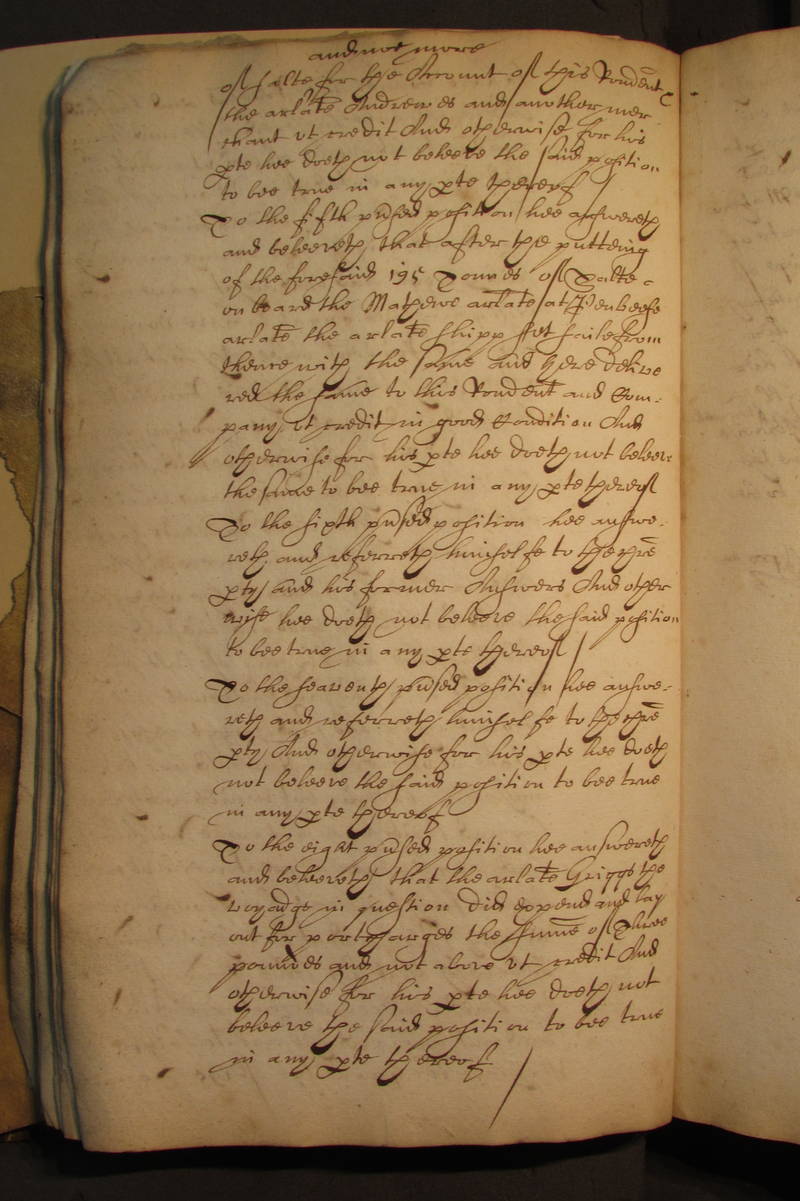 and noe more
of salte for the Account of this Rondent
the arlate Andrewes and another mer
chant vt credit And otherwise for his
pte hee doeth not beleeve the said position
to bee true in any pte thereof
To the fifth pused position hee answereth
and beleeveth that after the putteing
of the foresaid 195 Tonnes of Salte
on board the Mathewe arlate at
arlate the arlate shipp set saile from
thence with the same and here delive
red the same to this Rondent and Com-
pany vt credit in good Condition And
otherwise for his pte hee doeth not beleeve
the same to bee true in any pte thereof
To the sixth pused position hee answe-
reth and referreth himselfe to the chre
pty and his former Answers And other
wise hee doeth not beleeve the said position
to bee true in any pte thereof
To the seaventh pused position hee answe-
reth and referreth himselfe to the chre
pty And otherwise for his pte hee doeth
not beleeve the said position to bee true
in any pte thereof
To the eight pused position hee answereth
and beleeveth that the arlate Griggs the
voyadge in question did expend and lay
out for portcharges the summe of Three
pounds and not above vt credit And
otherwise for his pte hee doeth not
beleeve the said position to bee true
in any pte thereof